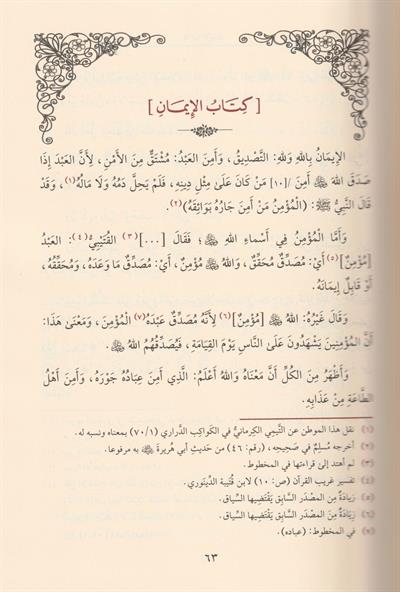 [ كِتَابُ الإِيمَانِ ]
الإِيمَانُ بِاللهِ وَلِلهِ: التَّصْدِيقُ، وَأَمِنَ العَبْدُ: مُشْتَقٌّ مِنَ الأَمْنِ، لِأَنَّ العَبْدَ إِذَا
صَدَقَ اللهَ ﷻ أَمِنَ /[١٠] مَنْ كَانَ عَلَىٰ مِثْلِ دِينِهِ، فَلَمْ يَحِلَّ دَمُهُ وَلَا مَالُهُ(١)، وَقَدْ
قَالَ النَّبِيُّ ﷺ: (المُؤْمِنُ مَنْ أَمِنَ جَارُهُ بَوَائِقَهُ)(٢).
وَأَمَّا المُؤْمِنُ فِي أَسْمَاءِ اللهِ ﷻ؛ فَقَالَ [...](٣) القُتَيْبِيُّ(٤): العَبْدُ
[مُؤْمِنٌ](٥) أَيْ: مُصَدِّقٌ مُحَقِّقٌ، وَاللهُ ﷻ مُؤْمِنٌ، أَيْ: مُصَدِّقٌ مَا وَعَدَهُ، وَمُحَقِّقُهُ،
أَوْ قَابِلٌ إِيمَانَهُ.
وَقَالَ غَيْرُهُ: اللهُ ﷻ [مُؤْمِنٌ](٦) لِأَنَّهُ مُصَدِّقٌ عَبْدَهُ(٧) المُؤْمِنَ، وَمَعْنَىٰ هَذَا:
أَنَّ المُؤْمِنِينَ يَشْهَدُونَ عَلَىٰ النَّاسِ يَوْمَ القِيَامَةِ، فَيُصَدِّقُهُمُ اللهُ ﷻ.
وَأَظْهَرُ مِنَ الكُلِّ أَنَّ مَعْنَاهُ وَاللهُ أَعْلَمُ: الَّذِي أَمِنَ عِبَادُهُ جَوْرَهُ، وَأَمِنَ أَهْلُ
الطَّاعَةِ مِنْ عَذَابِهِ.
(١) نقل هذا الموطن عن التَّيمي الكِرمانيُّ في الكَواكِب الدَّراري (٧٠/١) بمعناه ونسبه له.
(٢) أخرجه مُسلِمٌ في صَحِيحِه، (رقم: ٤٦) من حَديثِ أبي هُريرةَ ﷺ به مرفوعا.
(٣) لم أهتد إلىٰ قراءتها في المخطوط.
(٤) تفسير غريب القرآن (ص: ١٠) لابن قُتيبة الدِّينَوري.
(٥) زِيَادَةٌ مِنَ المَصْدَر السَّابِق يَقْتَضِيها السِّياق.
(٦) زِيَادَةٌ مِنَ المَصْدَر السَّابِق يَقْتَضِيها السِّياق.
(٧) في المخطوط: (عباده).
٦٣